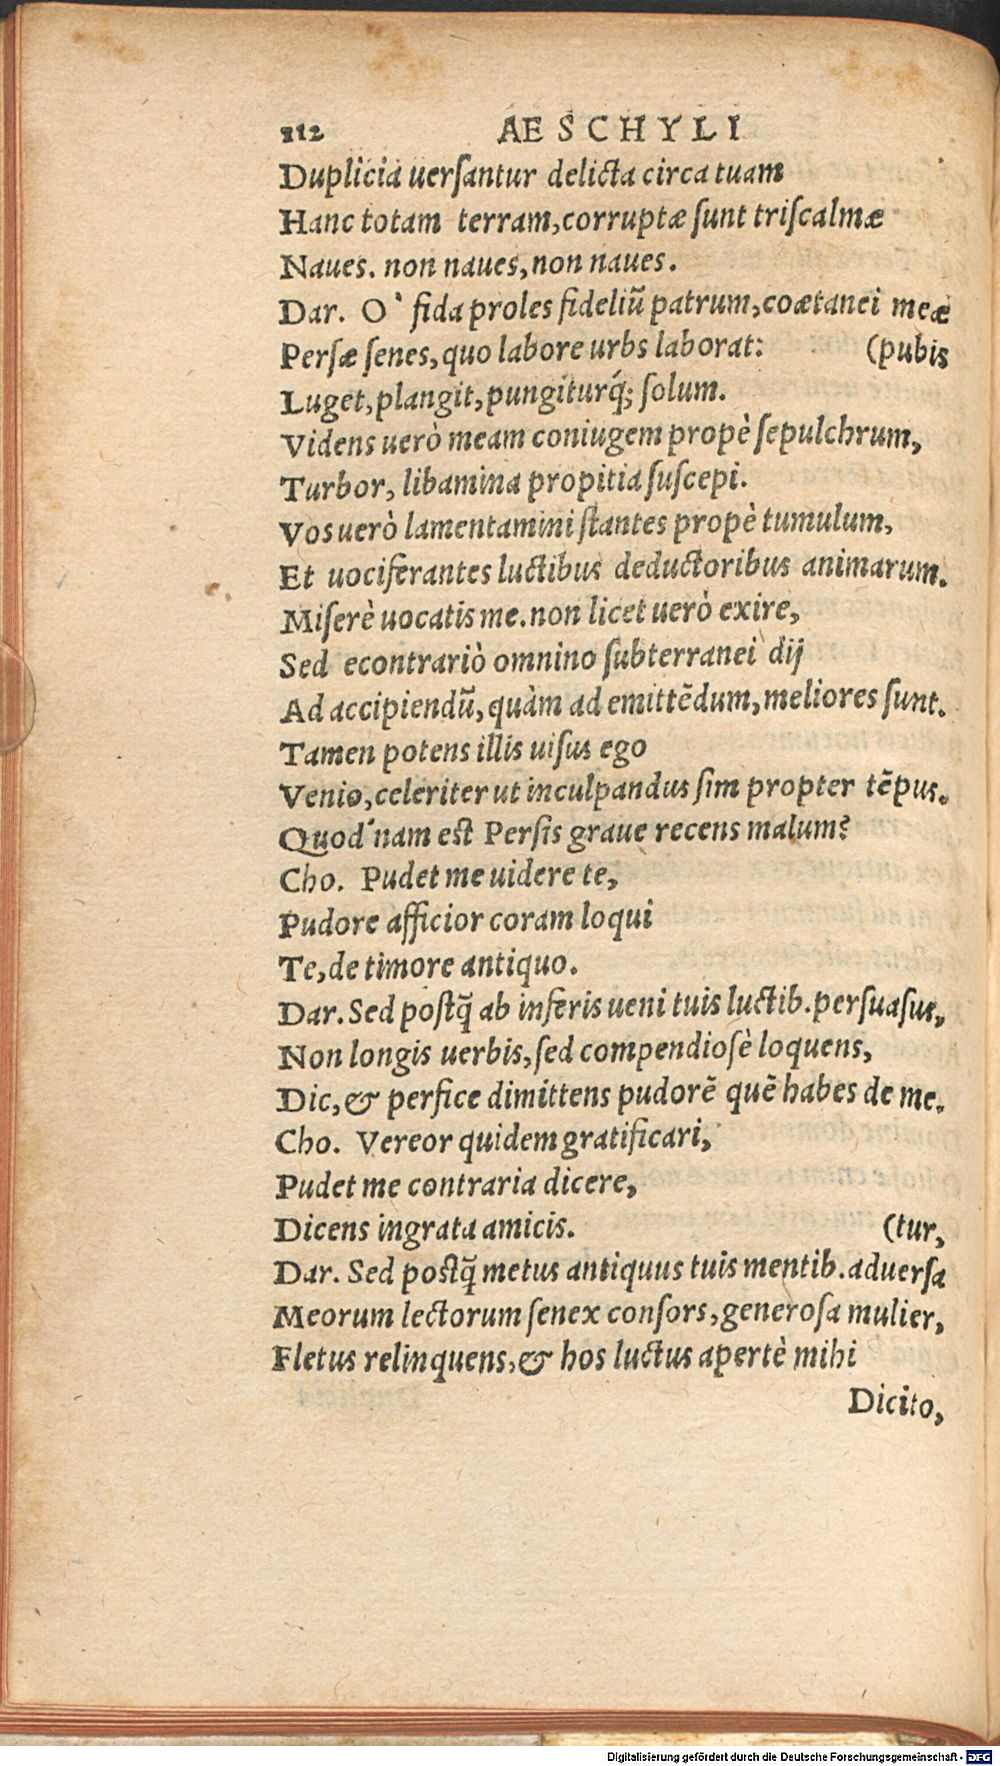 112 AESCHYLI
Duplicia uerſantur delicta circa tuam
Hanc totam terram, corruptæ ſunt triſcalmæ
Naues. non naues, non naues.
Dar. O` fida proles fideliũ patrum, coætanei meæ
Perſæ ſenes, quo labore urbs laborat: (pubis
Luget, plangit, pungiturq́; ſolum.
Videns uerò meam coniugem propè ſepulchrum,
Turbor, libamina propitia ſuſcepi.
Vos uerò lamentamini ſtantes propè tumulum,
Et uociferantes luctibus deductoribus animarum.
Miſerè uocatis me. non licet uerò exire,
Sed econtrariò omnino ſubterranei dij
Ad accipiendũ, quàm ad emittẽdum, meliores ſunt.
Tamen potens illis uiſus ego
Venio, celeriter ut inculpandus ſim propter tẽpus.
Quod'nam est Perſis graue recens malum?
Cho. Pudet me uidere te,
Pudore afficior coram loqui
Te, de timore antiquo.
Dar. Sed poſtq̃ ab inferis ueni tuis luctib. perſuaſus,
Non longis uerbis, ſed compendioſè loquens,
Dic, & perfice dimittens pudorẽ quẽ habes de me.
Cho. Vereor quidem gratificari,
Pudet me contraria dicere,
Dicens ingrata amicis. (tur,
Dar. Sed postq̃ metus antiquus tuis mentib. aduerſa
Meorum lectorum ſenex conſors, generoſa mulier,
Fletus relinquens, & hos luctus apertè mihi
Dicito,
Digitalisierung gefördert durch die Deutsche Forschungsgemeinschaft - DFG